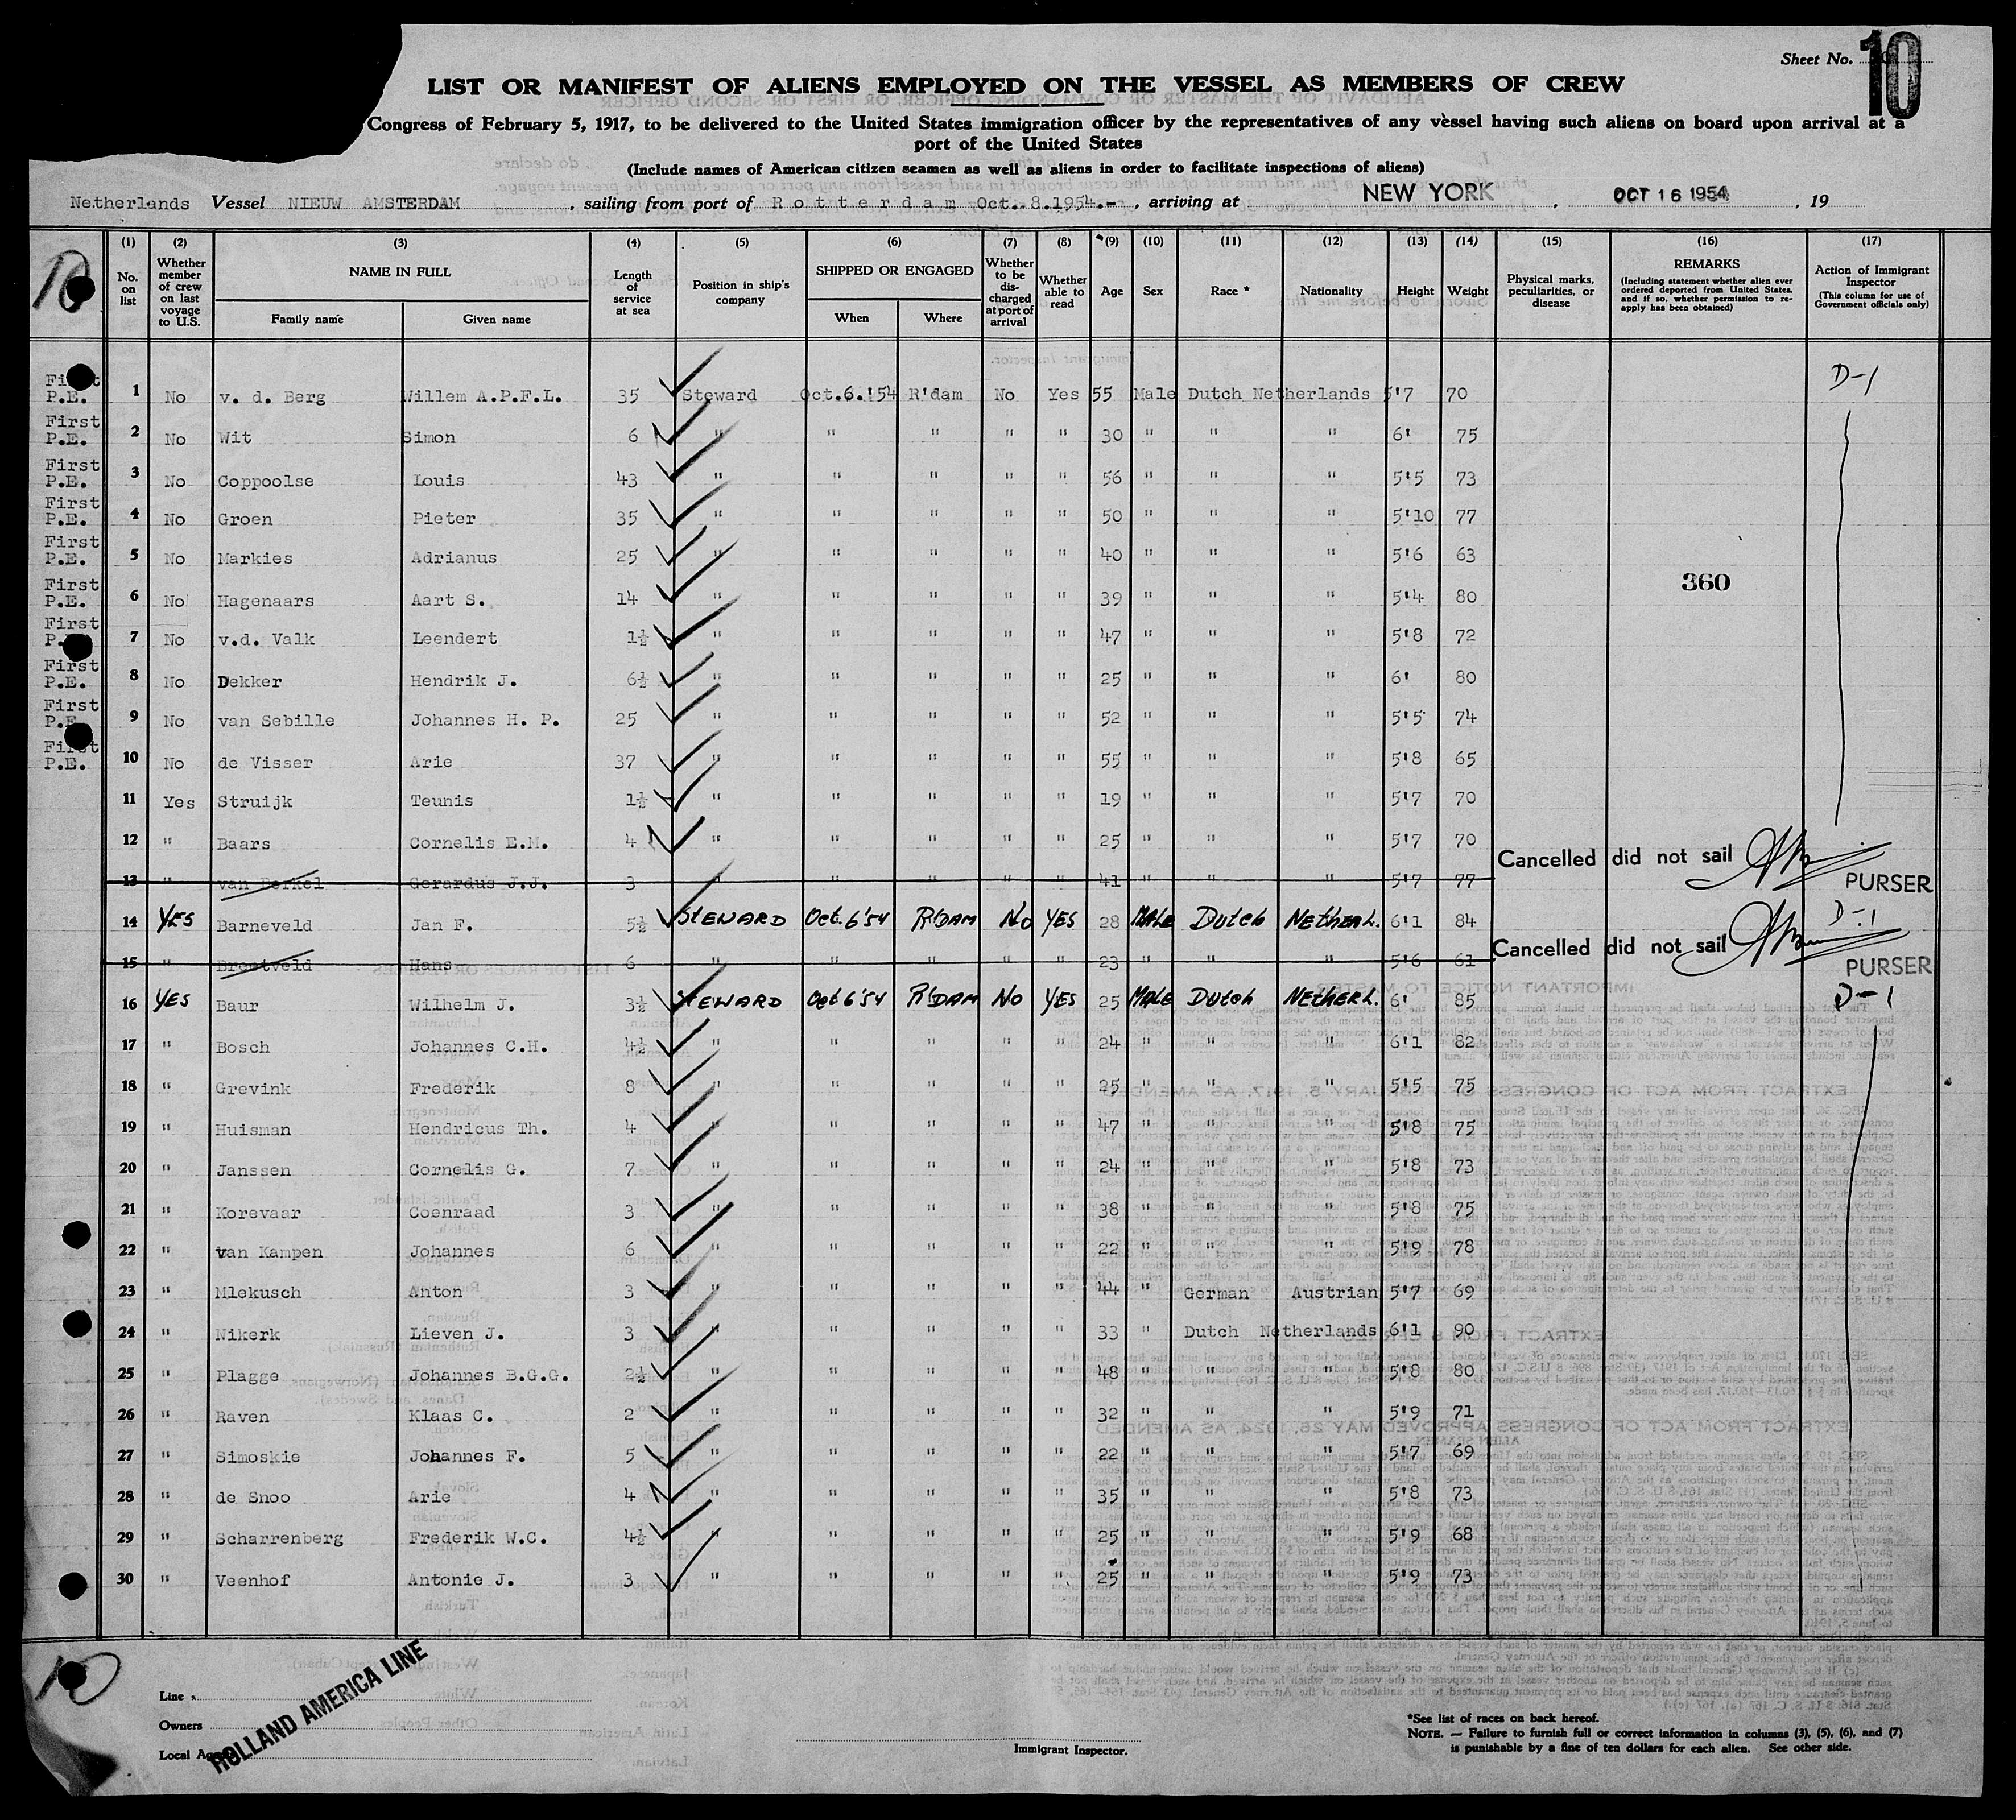 Sheet No. 10
LIST OR MANIFEST OF ALIENS EMPLOYED ON THE VESSEL AS MEMBERS OF CREW
Congress of February 5, 1917, to be delivered to the United States immigration officer by the representatives of any vessel having such aliens on board upon arrival at a
port of the United States
(Include names of American citizen seamen as well as aliens in order to facilitate inspections of aliens)
Netherlands Vessel NIEUW AMSTERDAM, sailing from port of Rotterdam Oct. 8.1954.-, arriving at NEW YORK, OCT 16 1954, 19
10
(1) (2) (3) (4) (5) (6) (7) (8) (9) (10) (11) (12) (13) (14) (15) (16) (17)
No. on list
Whether member of crew on last voyage to U.S.
NAME IN FULL
Family name
Given name
Length of service at sea
Position in ship's company
SHIPPED OR ENGAGED
When
Where
Whether to be discharged at port of arrival
Whether able to read
Age
Sex
Race *
Nationality
Height
Weight
Physical marks, peculiarities, or disease
REMARKS
(Including statement whether alien ever ordered deported from United States, and if so, whether permission to re-apply has been obtained)
Action of Immigrant Inspector
(This column for use of Government officials only)
D-1
First P.E. 1 No v. d. Berg Willem A.P.F.L. 35 Steward Oct.6.'54 R'dam No Yes 55 Male Dutch Netherlands 5'7 70
First P.E. 2 No Wit Simon 6 " " " " " 30 " " " 6' 75
First P.E. 3 No Coppoolse Louis 43 " " " " " 56 " " " 5'5 73
First P.E. 4 No Groen Pieter 35 " " " " " 50 " " " 5'10 77
First P.E. 5 No Markies Adrianus 25 " " " " " 40 " " " 5'6 63
First P.E. 6 No Hagenaars Aart S. 14 " " " " " 39 " " " 5'4 80
360
First P.E. 7 No v.d. Valk Leendert 1½ " " " " " 47 " " " 5'8 72
First P.E. 8 No Dekker Hendrik J. 6½ " " " " " 25 " " " 6' 80
First P.E. 9 No van Sebille Johannes H. P. 25 " " " " " 52 " " " 5'5 74
First P.E. 10 No de Visser Arie 37 " " " " " 55 " " " 5'8 65
11 Yes Struijk Teunis 1½ " " " " " 19 " " " 5'7 70
12 " Baars Cornelis E.M. 4 " " " " " 25 " " " 5'7 70
Cancelled did not sail
PURSER
13 " van Berkel Gerardus J.J. 3 " " " " " 41 " " " 5'7 77
14 YES Barneveld Jan F. 5½ STEWARD Oct. 6'54 R'DAM No YES 28 MALE Dutch NETHERL. 6'1 84 D-1
Cancelled did not sail
PURSER
15 " Brontveld Hans 6 " " " " " 23 " " " 5'6 61
16 YES Baur Wilhelm J. 3½ STEWARD Oct 6'54 R'DAM No YES 25 MALE Dutch NETHERL. 6' 85 D-1
17 " Bosch Johannes C.H. 4½ " " " " " 24 " " " 6'1 82
18 " Grevink Frederik 8 " " " " " 25 " " " 5'5 75
19 " Huisman Hendricus Th. 4 " " " " " 47 " " " 5'8 75
20 " Janssen Cornelis G. 7 " " " " " 24 " " " 5'8 73
21 " Korevaar Coenraad 3 " " " " " 38 " " " 5'8 75
22 " van Kampen Johannes 6 " " " " " 22 " " " 5'9 78
23 " Mlekusch Anton 3 " " " " " 44 " German Austrian 5'7 69
24 " Nikerk Lieven J. 3 " " " " " 33 " Dutch Netherlands 6'1 90
25 " Plagge Johannes B.G.G. 2½ " " " " " 48 " " " 5'8 80
26 " Raven Klaas C. 2 " " " " " 32 " " " 5'9 71
27 " Simoskie Johannes F. 5 " " " " " 22 " " " 5'7 69
28 " de Snoo Arie 4 " " " " " 35 " " " 5'8 73
29 " Scharrenberg Frederik W.C. 4½ " " " " " 25 " " " 5'9 68
30 " Veenhof Antonie J. 3 " " " " " 25 " " " 5'9 73
10
HOLLAND AMERICA LINE
Line
Owners
Local Agents
Immigrant Inspector.
*See list of races on back hereof.
NOTE. — Failure to furnish full or correct information in columns (3), (5), (6), and (7)
is punishable by a fine of ten dollars for each alien. See other side.